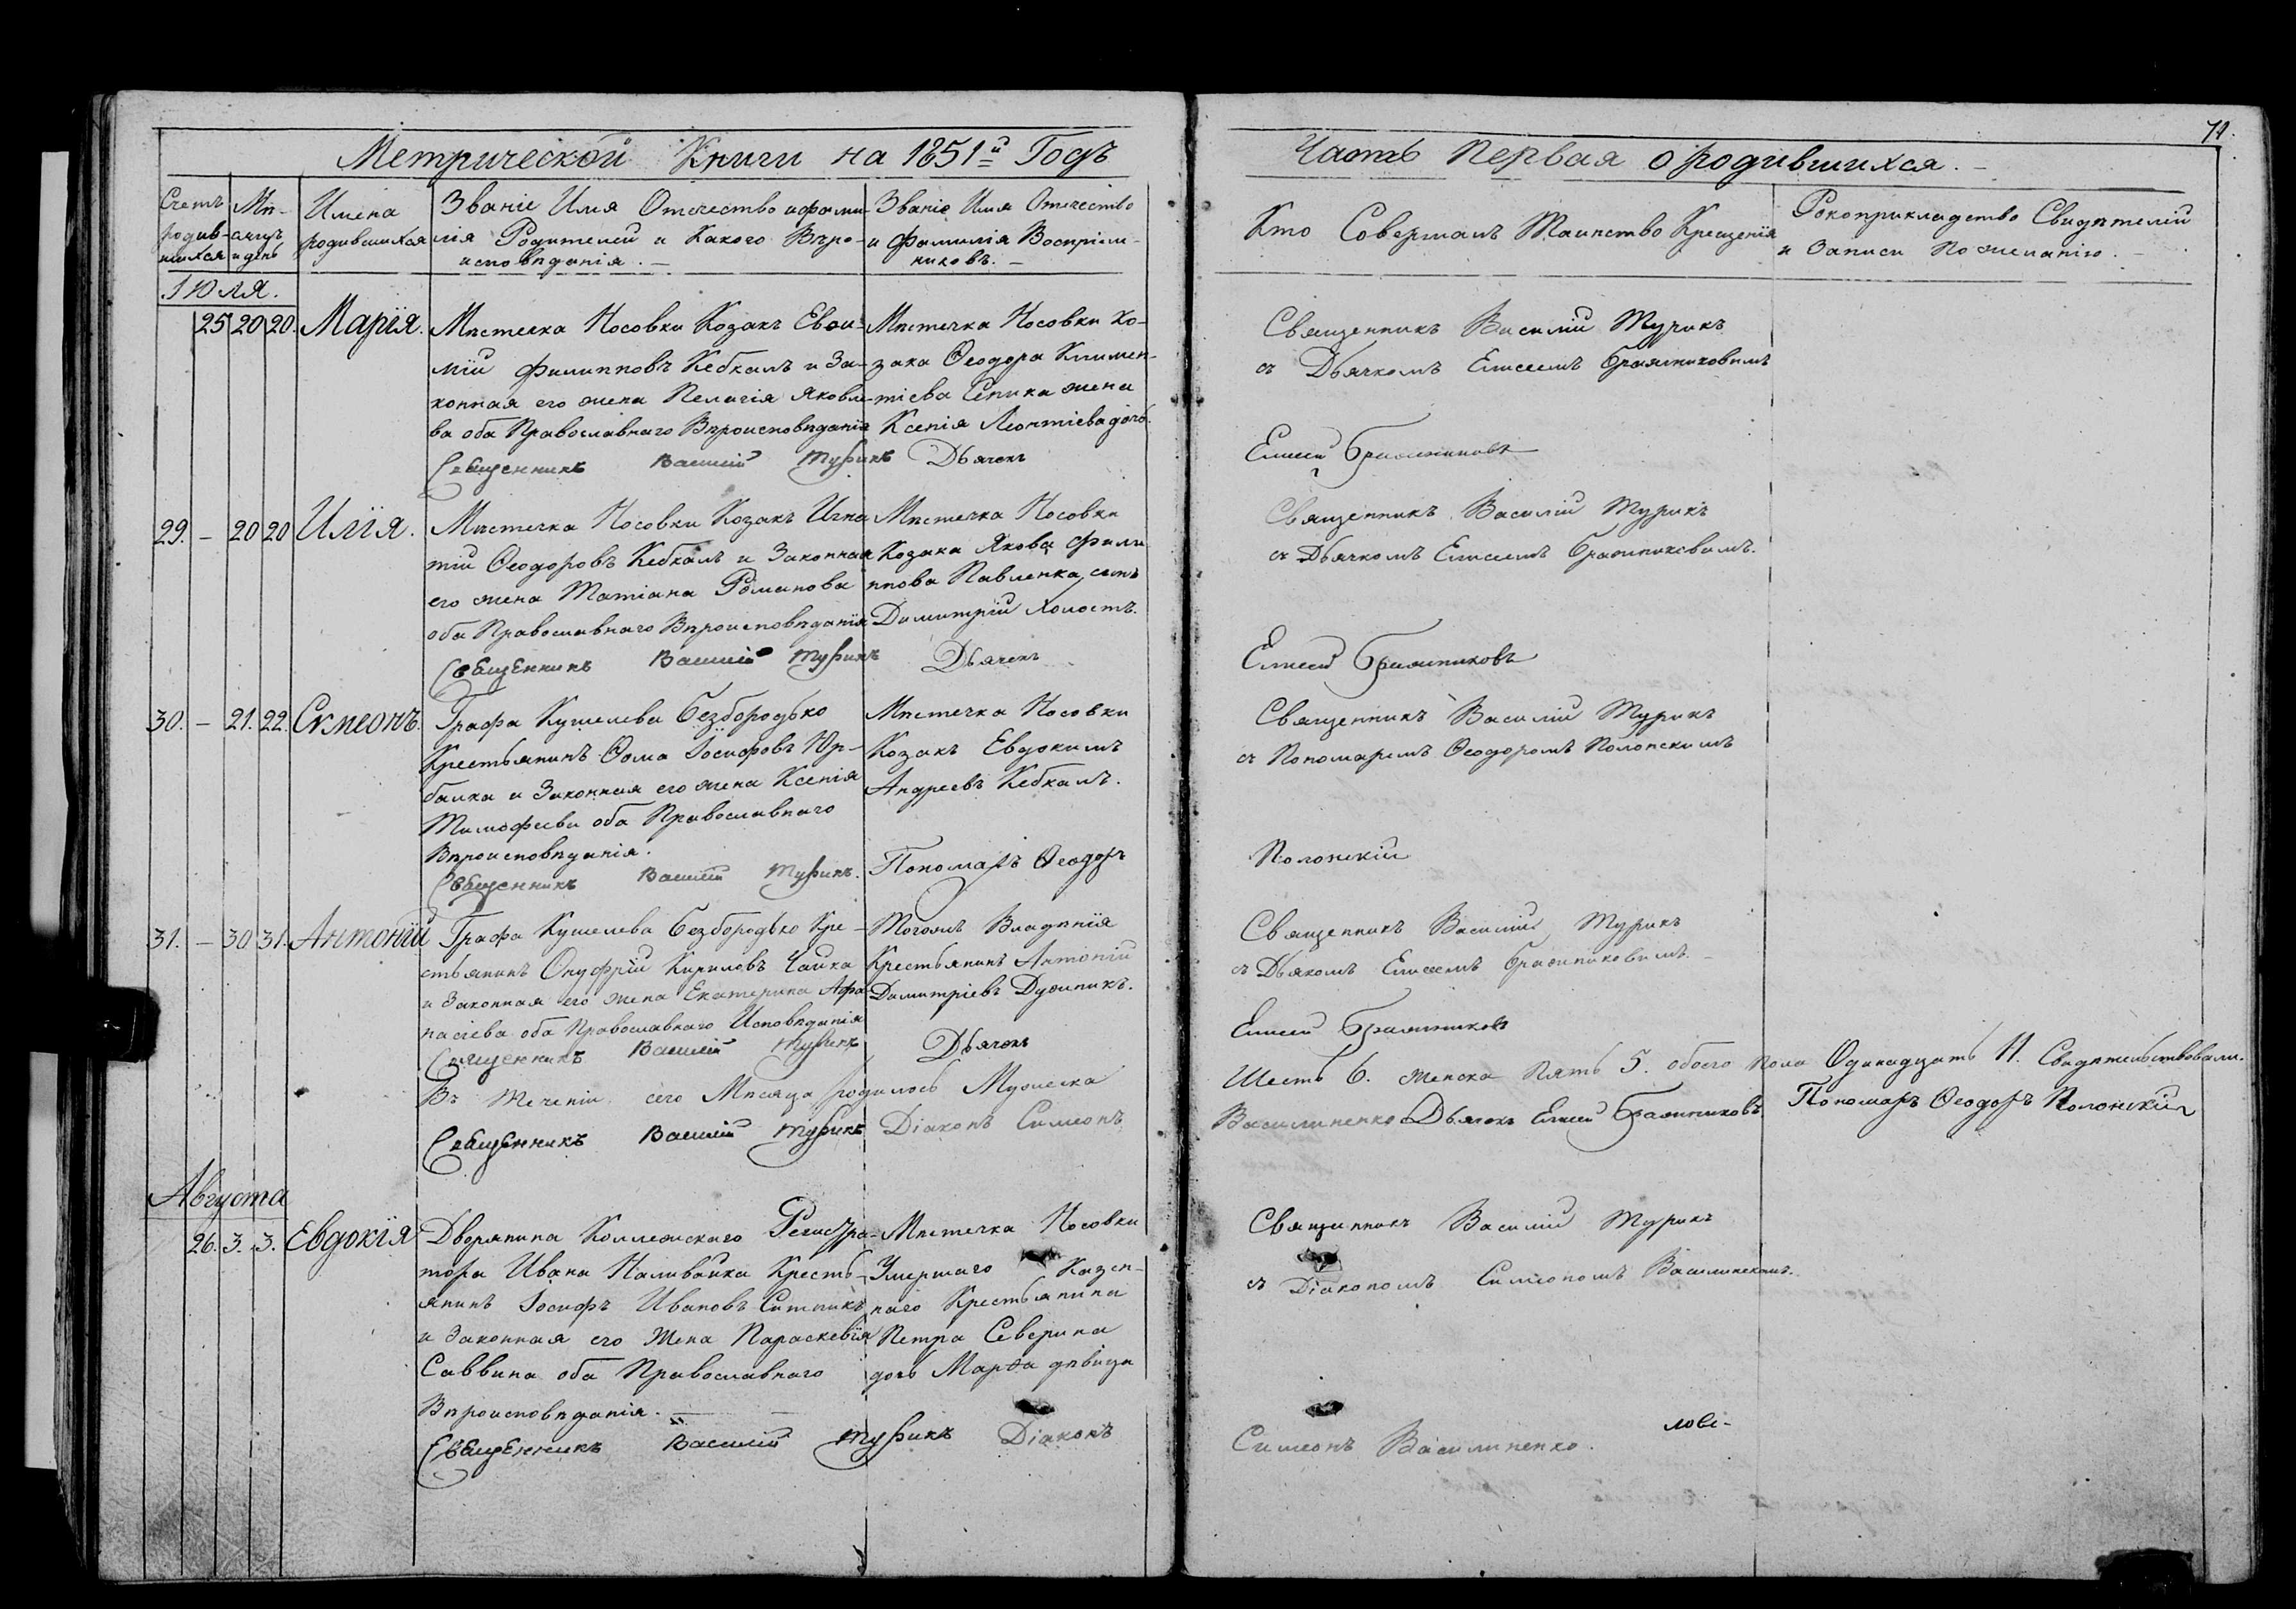 Метрической Книги на 1851й Годъ
Часть Первая о родившихся.
71.
Счетъ родив-шихся
Мѣ-сяцъ и день
Имена родившихся
Званіе Имя Отчество и фами-
лія Родителей и Какого Вѣро-
исповѣданія. —
Званіе Имя Отчество
и Фамилія Воспріем-
никовъ. —
Кто Совершалъ Таинство Крещенія
Рокоприкладство Свидѣтелей
и Записи По желанію.
Іюля.
25 20 20. Марія.
Мѣстечка Носовки Козакъ
мій Филипповъ Кебкалъ и За-
конная его жена Пелагія Яковле-
ва оба Православнаго Вѣроисповѣданія
Мѣстечка Носовки Ко-
зака Ѳеодора Климен-
тіева жена
Ксенія Леонтіева дочь.
Священникъ Василій Турикъ
съ Дьячкомъ Елисеемъ Бражниковымъ
Священникъ Василій Турикъ Дьячекъ
Елисей Бражниковъ
29. — 20 20 Илія.
Мѣстечка Носовки Козакъ Игна
тій Ѳеодоровъ Кебкалъ и Законная
его жена Татіана Романова
оба Православнаго Вѣроисповѣданія
Мѣстечка Носовки
Козака Якова Фили
ппова Павленка, сынъ
Димитрій холостъ.
Священникъ Василій Турикъ
съ Дьячкомъ Елисеемъ Бражниковымъ.
Священникъ Василій Турикъ Дьячекъ
Елисей Бражниковъ
30. — 21. 22. Сѵмеонъ.
Графа Кушелева Безбородько
Крестьянинъ Ѳома Іосифовъ Юр-
балка и Законная его жена Ксенія
Тимофеева оба Православнаго
Вѣроисповѣданія.
Мѣстечка Носовки
Козакъ Евдокимъ
Андреевъ Кебкалъ.
Священникъ Василій Турикъ
съ Пономаремъ Ѳеодоромъ Полонскимъ
Священникъ Василій Турикъ. Пономарь Ѳеодоръ
Полонскій
31. — 30 31. Антоній
Графа Кушелева Безбородько Кре-
стьянинъ Онуфрій Кириловъ Чайка
и Законная его жена Екатерина Афа
насіева оба Православнаго Исповѣданія
Тогожъ Владѣнія
Крестьянинъ Антоній
Димитріевъ Дудникъ.
Священникъ Василій Турикъ
съ Дьякомъ Елисеемъ Бражниковымъ. —
Священникъ Василій Турикъ Дьячекъ
Елисей Бражниковъ
Въ Теченіи сего Мѣсяца родилось Мужеска
Шесть 6. женска Пять 5. обоего пола Одинадцать 11. Свидѣтельствовали.
Священникъ Василій Турикъ Діаконъ Симеонъ
Василиненко Дьячекъ Елисей Бражниковъ Пономарь Ѳеодоръ Полонскій
Августа
26. 3. 3. Евдокія
Дворянина Коллежскаго Регистра-
тора Ивана Наливайка Кресть-
янинъ Іосифъ Ивановъ Ситникъ
и Законная его Жена Параскевія
Саввина оба Православнаго
Вѣроисповѣданія. —
Мѣстечка Носовки
Умершаго Казен-
наго Крестьянина
Петра Северина
дочь Марѳа дѣвица
Священникъ Василій Турикъ
съ Діакономъ Симеономъ Василиненкомъ.
Священникъ Василій Турикъ Діаконъ
Симеонъ Василиненко.